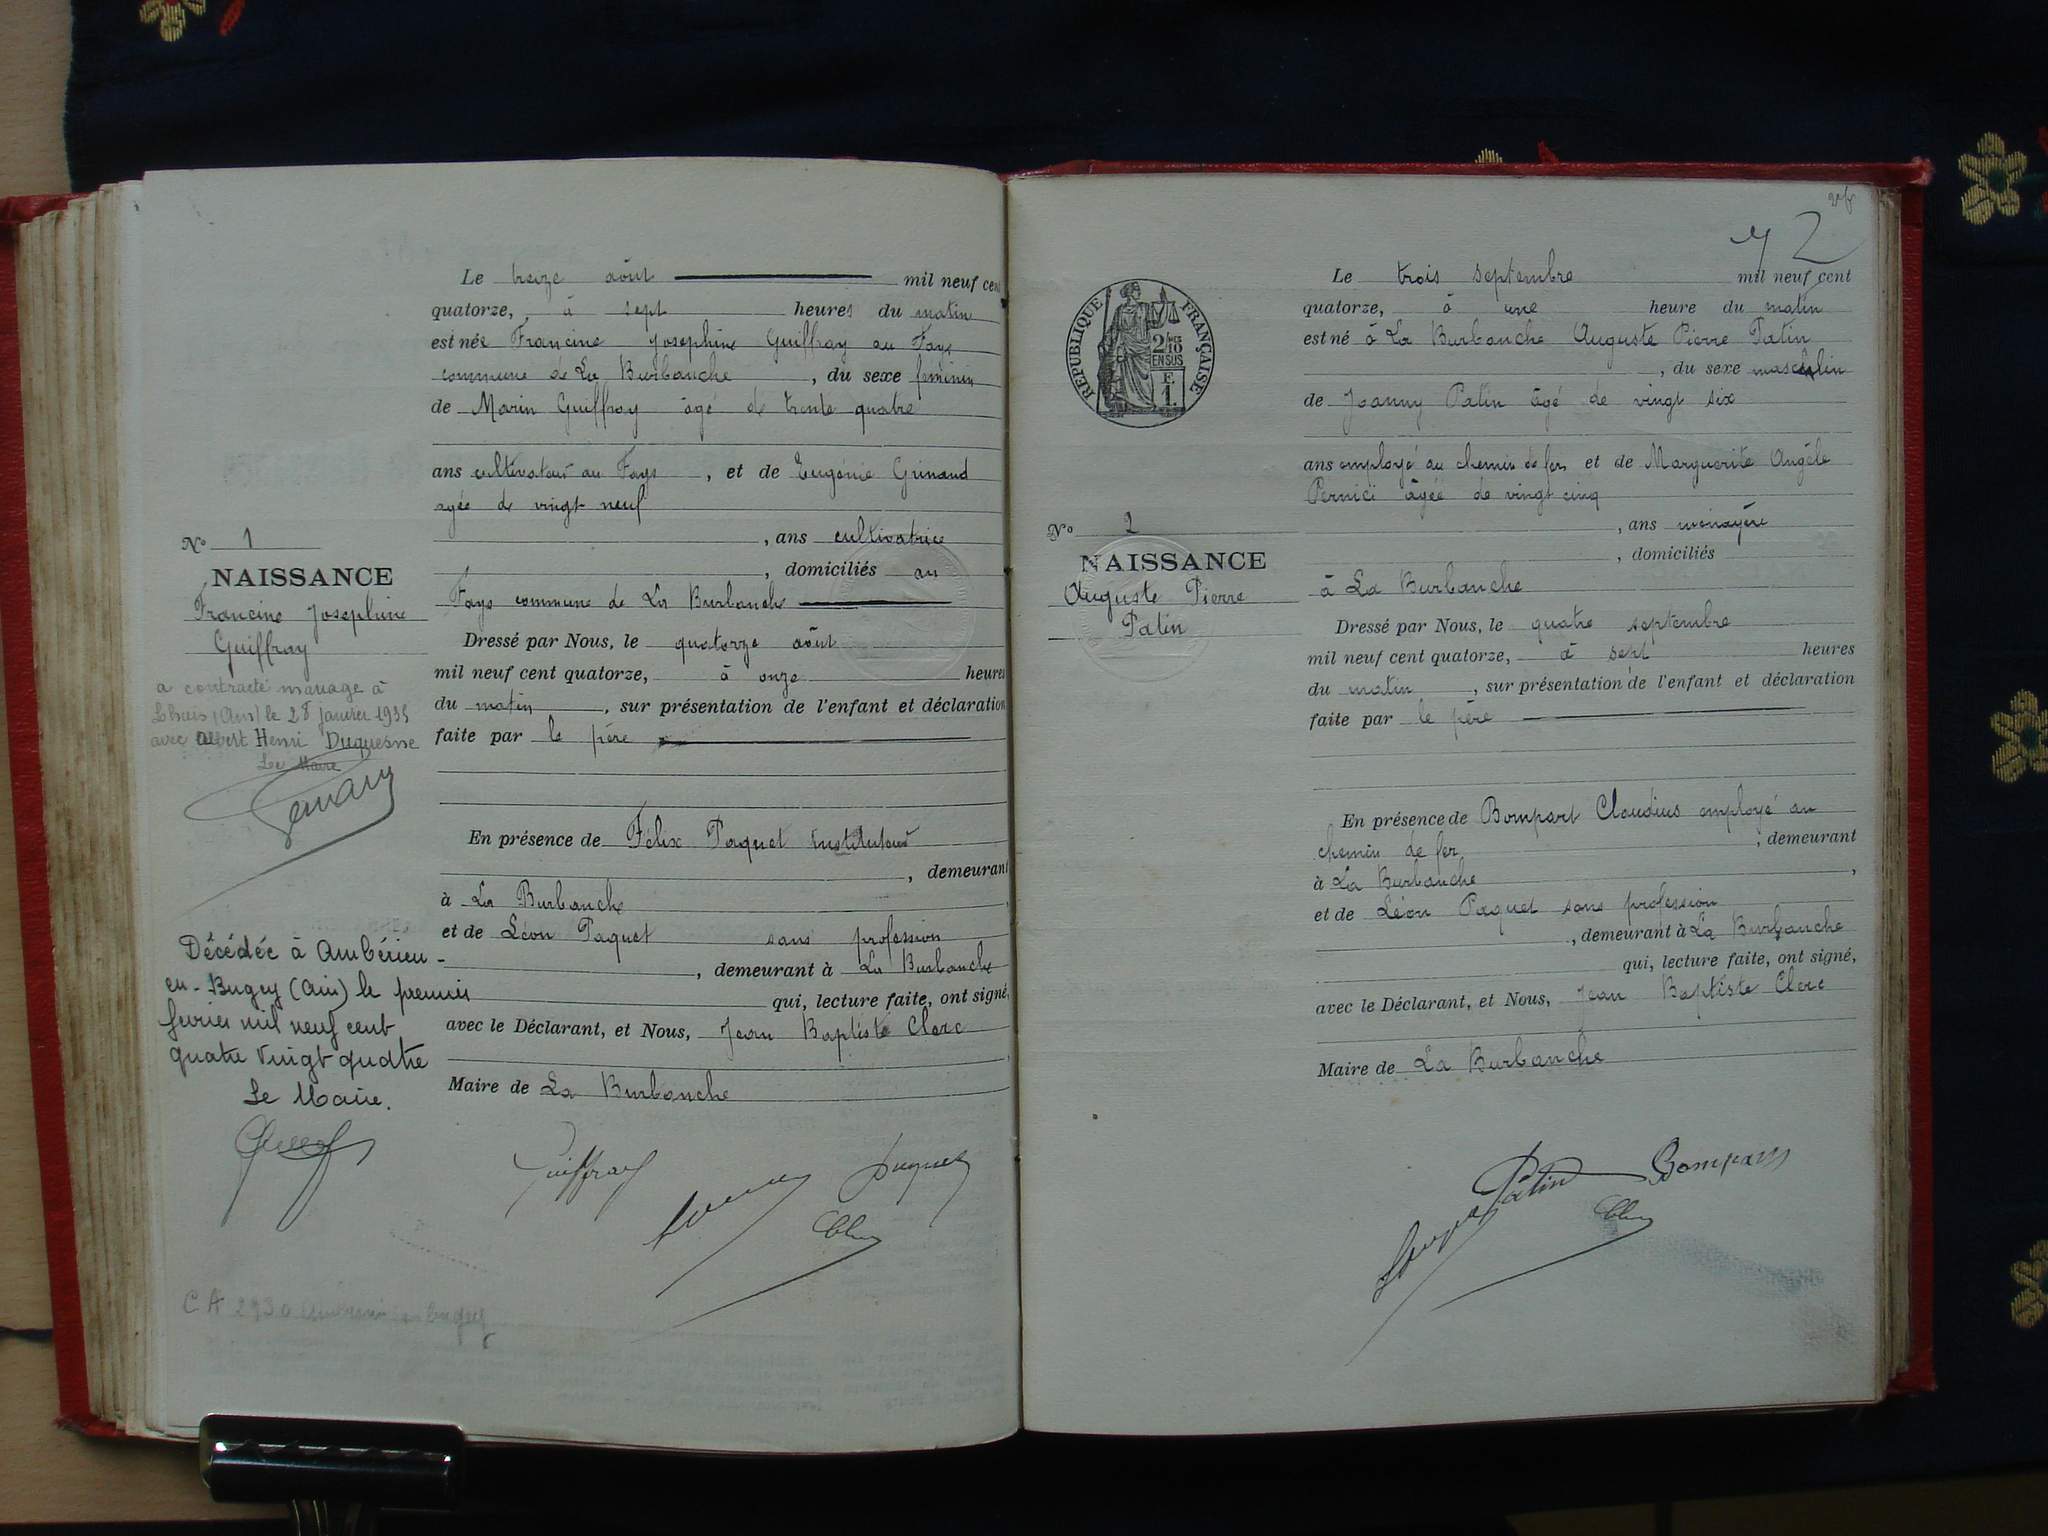 Le treize août mil neuf cent
quatorze, à sept heures du matin
est née Francine Josephine Guiffray au Fays
commune de La Burbanche, du sexe féminin
de Marin Guiffray âgé de trente quatre
ans cultivateur au Fays, et de Eugénie Grinand
agée de vingt neuf
, ans cultivatrice
, domiciliés au
Fays commune de La Burbanche
Dressé par Nous, le quatorze août
mil neuf cent quatorze, à onze heures
du matin, sur présentation de l'enfant et déclaration
faite par le père
En présence de Félix Paquet instituteur
, demeurant
à La Burbanche
et de Léon Paquet sans profession
, demeurant à La Burbanche
qui, lecture faite, ont signé,
avec le Déclarant, et Nous, Jean Baptiste Clerc
Maire de La Burbanche
Guiffray
No 1
NAISSANCE
Francine Josephine
Guiffray
a contracté mariage à
Lhuis (Ain) le 28 janvier 1935
avec Albert Henri Duquesne
Le Maire
Décédée à Ambérieu-
en-Bugey (Ain) le premier
février mil neuf cent
quatre vingt quatre
Le Maire.
C A 2930
72
REPUBLIQUE FRANÇAISE
2/10
EN SUS
F.
1.
Le trois septembre mil neuf cent
quatorze, à une heure du matin
est né à La Burbanche Auguste Pierre Patin
, du sexe masculin
de Joanny Patin âgé de vingt six
ans employé au chemin de fer, et de Marguerite Angèle
Pernici âgée de vingt cinq
, ans ménagère
, domiciliés
à La Burbanche
Dressé par Nous, le quatre septembre
mil neuf cent quatorze, à sept heures
du matin, sur présentation de l'enfant et déclaration
faite par le père
En présence de Bompart Claudius employé au
chemin de fer, demeurant
à La Burbanche,
et de Léon Paquet sans profession
, demeurant à La Burbanche
qui, lecture faite, ont signé,
avec le Déclarant, et Nous, Jean Baptiste Clerc
Maire de La Burbanche
Patin Bompart
No 2
NAISSANCE
Auguste Pierre
Patin